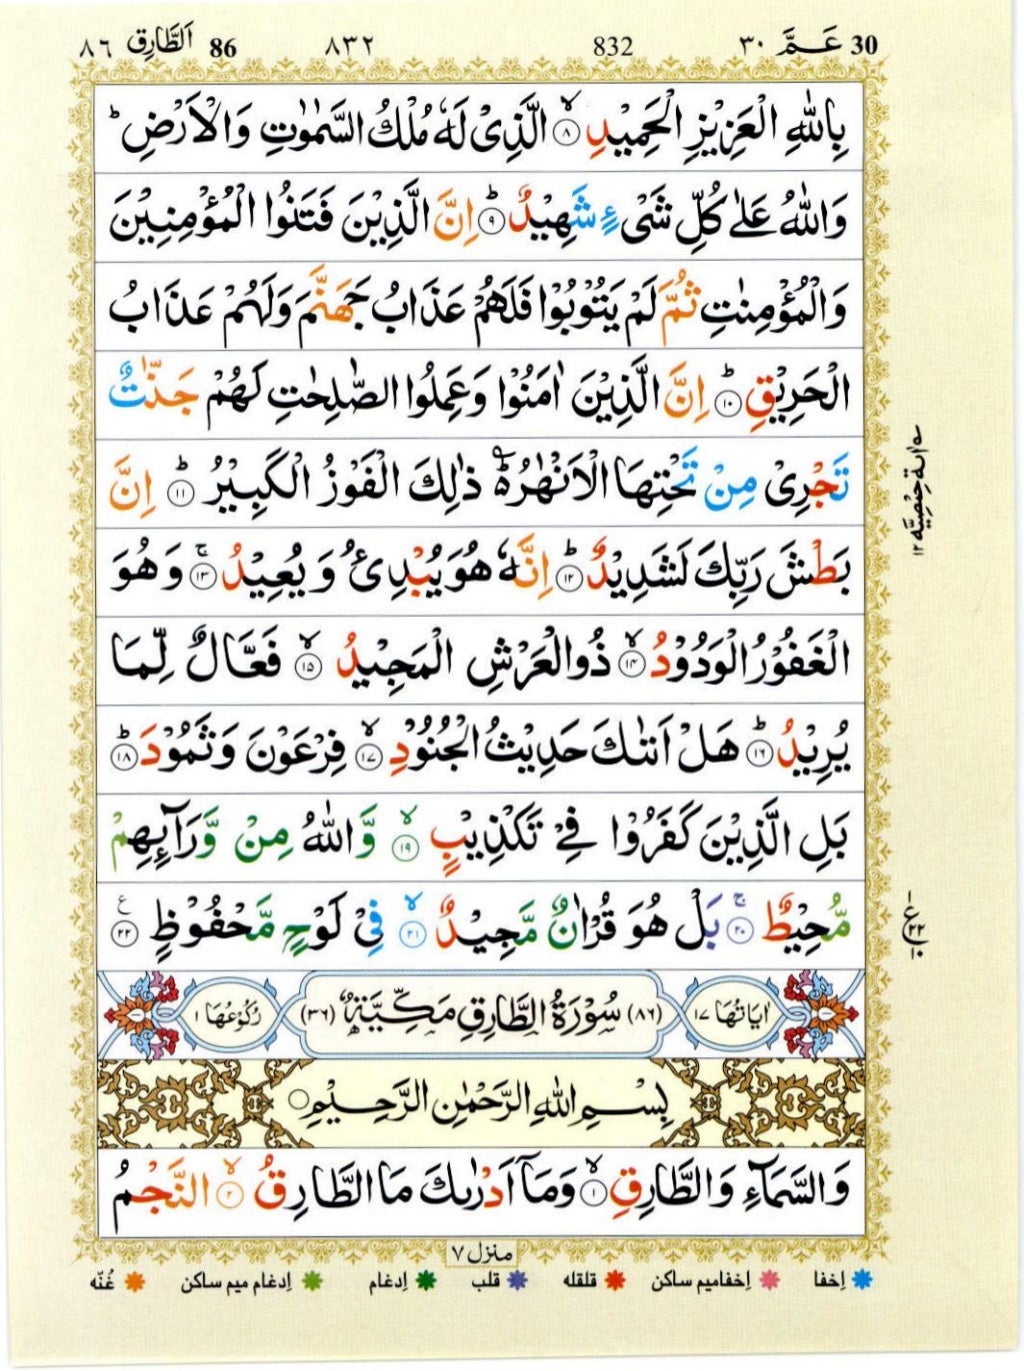 30 عَـمَّ ٣٠ 832 ٨٣٢ 86 اَلطَّارِق ٨٦
بِاللّٰهِ الْعَزِيْزِ الْحَمِيْدِ ۙ‏﴿۸﴾ الَّذِىْ لَهٗ مُلْكُ السَّمٰوٰتِ وَالْاَرْضِ ؕ
وَاللّٰهُ عَلٰى كُلِّ شَىْءٍ شَهِيْدٌ ؕ‏﴿۹﴾ اِنَّ الَّذِيْنَ فَتَنُوا الْمُؤْمِنِيْنَ
وَالْمُؤْمِنٰتِ ثُمَّ لَمْ يَتُوْبُوْا فَلَهُمْ عَذَابُ جَهَنَّمَ وَلَهُمْ عَذَابُ
الْحَرِيْقِ ؕ‏﴿۱۰﴾ اِنَّ الَّذِيْنَ اٰمَنُوْا وَعَمِلُوا الصّٰلِحٰتِ لَهُمْ جَنّٰتٌ
تَجْرِىْ مِنْ تَحْتِهَا الْاَنْهٰرُ ۬ؕ ذٰلِكَ الْفَوْزُ الْكَبِيْرُ ؕ‏﴿۱۱﴾ اِنَّ
بَطْشَ رَبِّكَ لَشَدِيْدٌ ؕ‏﴿۱۲﴾ اِنَّهٗ هُوَ يُبْدِئُ وَيُعِيْدُ ۚ‏﴿۱۳﴾ وَهُوَ
الْغَفُوْرُ الْوَدُوْدُ ۙ‏﴿۱۴﴾ ذُوالْعَرْشِ الْمَجِيْدُ ۙ‏﴿۱۵﴾ فَعَّالٌ لِّمَا
يُرِيْدُ ؕ‏﴿۱۶﴾ هَلْ اَتٰٮكَ حَدِيْثُ الْجُنُوْدِ ۙ‏﴿۱۷﴾ فِرْعَوْنَ وَثَمُوْدَ ؕ‏﴿۱۸﴾
بَلِ الَّذِيْنَ كَفَرُوْا فِىْ تَكْذِيْبٍ ۙ‏﴿۱۹﴾ وَّاللّٰهُ مِنْ وَّرَآئِهِمْ
مُّحِيْطٌ ۚ‏﴿۲۰﴾ بَلْ هُوَ قُرْاٰنٌ مَّجِيْدٌ ۙ‏﴿۲۱﴾ فِىْ لَوْحٍ مَّحْفُوْظٍ ‏﴿۲۲﴾ ع
اٰيَاتُهَا ١٧ (٨٦) سُوْرَةُ الطَّارِقِ مَكِّيَّةٌ (٣٦) رُكُوْعُهَا ١
بِسْمِ اللّٰهِ الرَّحْمٰنِ الرَّحِيْمِ
وَالسَّمَآءِ وَالطَّارِقِ ۙ‏﴿۱﴾ وَمَاۤ اَدْرٰٮكَ مَا الطَّارِقُ ۙ‏﴿۲﴾ النَّجْمُ
منزل ٧
اِخفا اِخفامیم ساکن قلقله قلب اِدغام اِدغام میم ساکن غُنّه